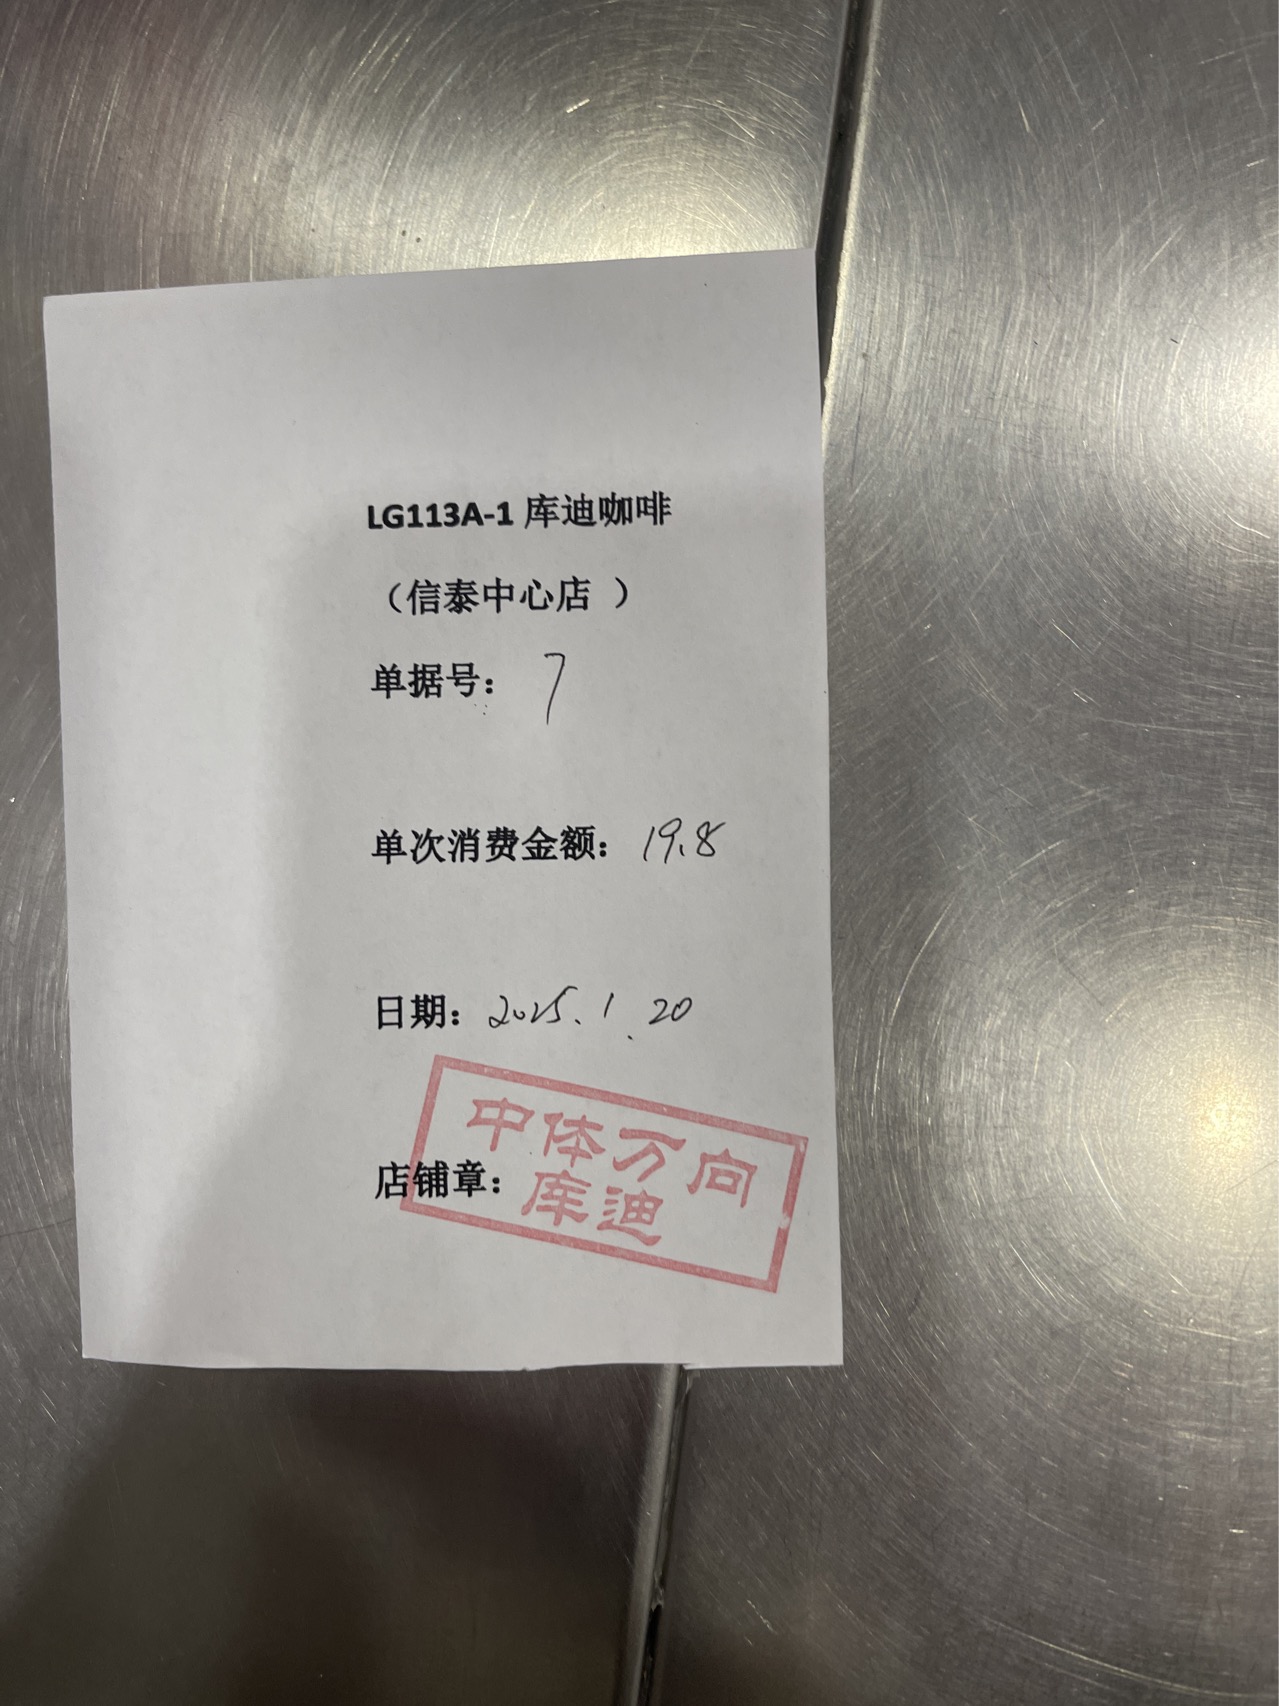 LG113A-1 库迪咖啡
（信泰中心店 ）
单据号： 7
单次消费金额： 19.8
日期： 2025.1.20
店铺章：
中体万向
库迪